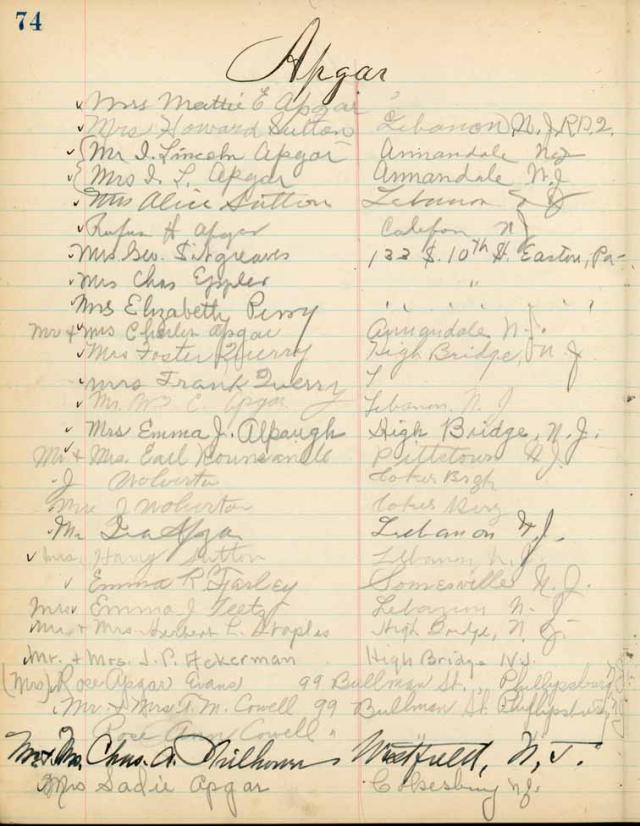 74
Apgar
Mrs Mattie E Apgar "
Mrs Howard Sutton Lebanon, N. J. R.D. 2.
Mr I. Lincoln Apgar Annandale N.J
Mrs I. L. Apgar Annandale N.J
Mrs Alice Sutton Lebanon N J
Rufus H Apgar Califon N J
Mrs. Geo. Sitgreaves 133 S. 10th St. Easton, Pa-
Mrs Chas Eppler "
Mrs Elizabeth Perry " " " " "
Mr & Mrs Charles Apgar Annandale N. J.
Mrs Foster Querry High Bridge, N. J
Mrs Frank Querry
Mr. Wm C. Apgar Lebanon, N. J
Mrs Emma J. Alpaugh High Bridge, N. J.
Mr & Mrs. Earl Rounsavelle Pittstown N.J.
J Wolverton
Mrs J Wolverton
Mr Ira Apgar Lebanon N J.
Mrs. Harry Sutton Lebanon N. J
Emma R. Farley Somerville N. J.
Mrs Emma J Teets Lebanon N. J
Mr. & Mrs. Herbert L. Staples High Bridge, N. J-
Mr. & Mrs. J. P. Ackerman High Bridge N.J.
(Mrs) Rose Apgar Evans 99 Bullman St., Phillipsburg N.J.
Mr. & Mrs. T. M. Cowell 99 Bullman St. Phillipsburg, N.J.
Rose Cowell "
Mr & Mrs. Chas. A. Philhower Westfield, N. J.
Mrs Sadie Apgar Cokesburg N.J.